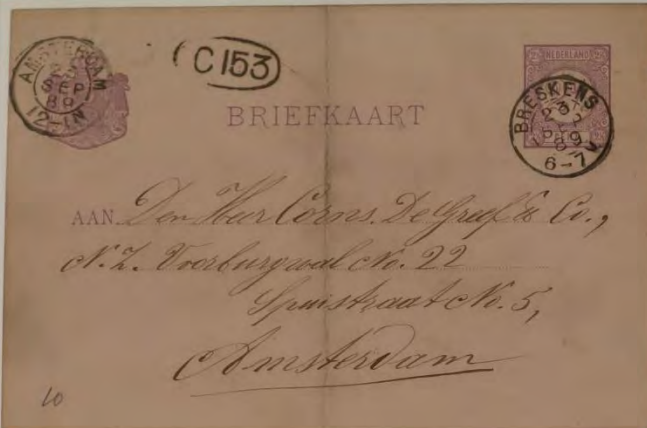 AMSTERDAM
SEP
89
12-1N
C 153
NEDERLAND
BRESKENS
23
SEP
89
6-7V
BRIEFKAART
AAN Den Heer Corns. De Greef & Co.,
N.Z. Voorburgwal No. 22
Spuistraat No. 5,
Amsterdam
10